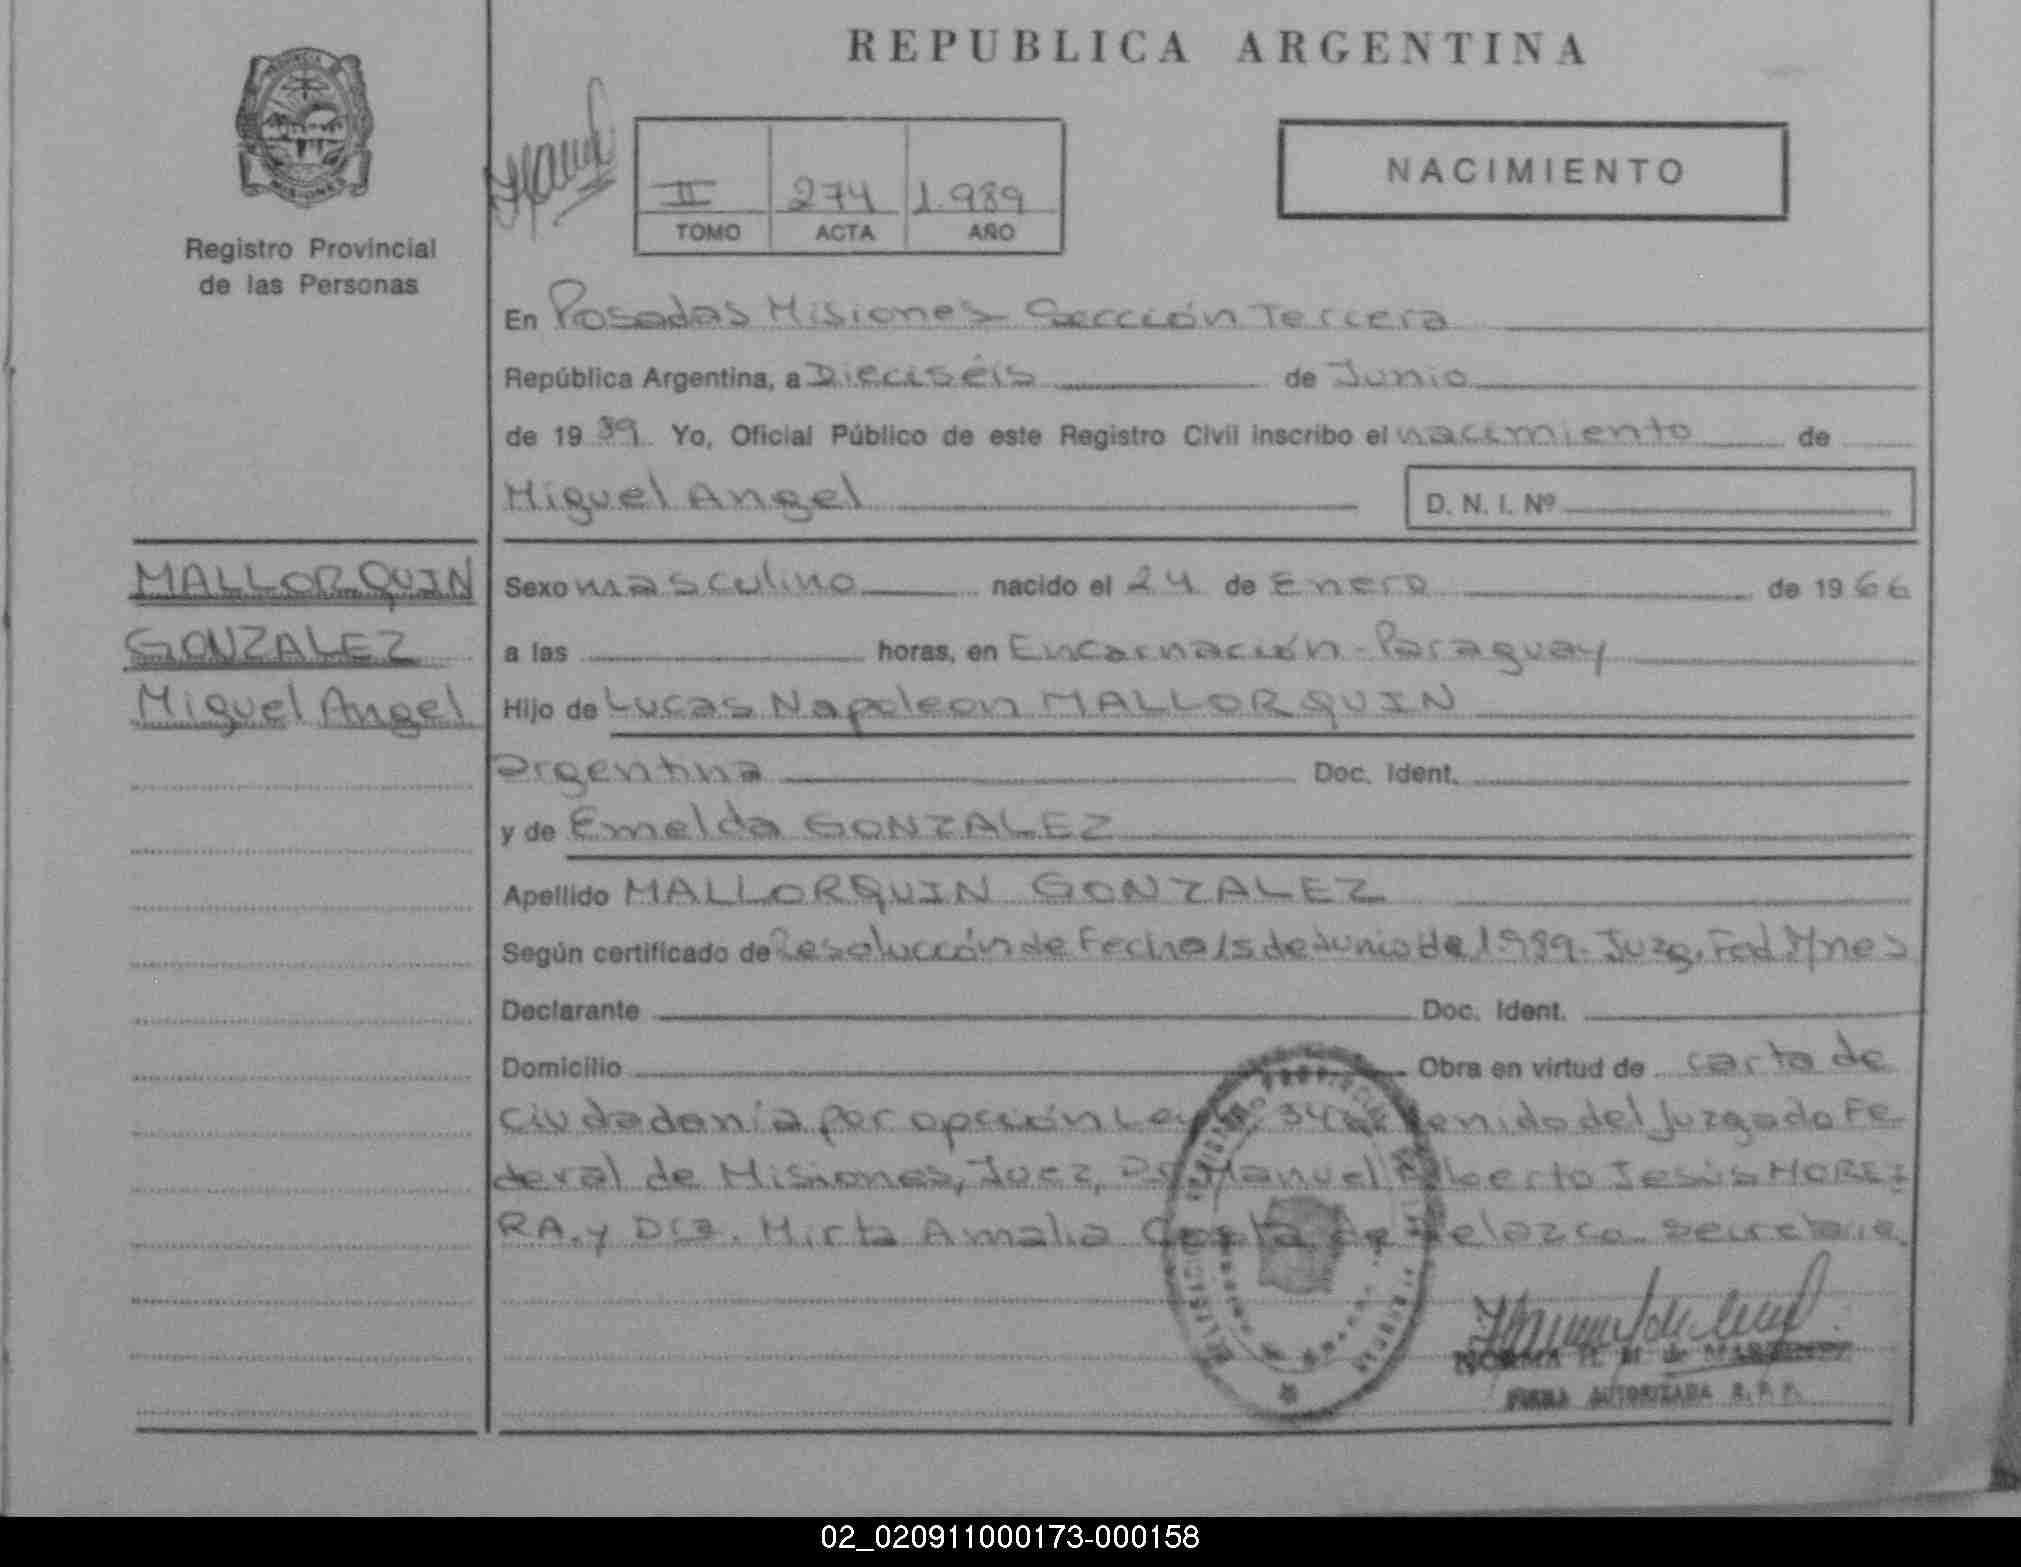 REPUBLICA ARGENTINA
Registro Provincial
de las Personas
II 274 1.989
TOMO ACTA AÑO
NACIMIENTO
En Posadas Misiones Seccción Tercera
República Argentina, a Dieciséis de Junio
de 19 89 Yo, Oficial Público de este Registro Civil inscribo el nacimiento de
Miguel Angel D. N. I. Nº
MALLORQUIN
GONZALEZ
Miguel Angel
Sexo masculino nacido el 24 de Enero de 19 66
a las horas, en Encarnación - Paraguay
Hijo de Lucas Napoleon MALLORQUIN
argentina Doc. Ident.
y de Emelda GONZALEZ
Apellido MALLORQUIN GONZALEZ
Según certificado de Resolucción de Fecha 15 de Junio de 1989. Juzg. Fed. Mnes
Declarante Doc. Ident.
Domicilio Obra en virtud de carta de
ciudadanía por opción Ley del Juzgado Fe-
deral de Misiones, Juez, Dr Manuel Alberto Jesús MOREI
RA. y Dra. Mirta Amalia de Velazco. Secretaria.
FIRMA AUTORIZADA R.P.P.
02_020911000173-000158